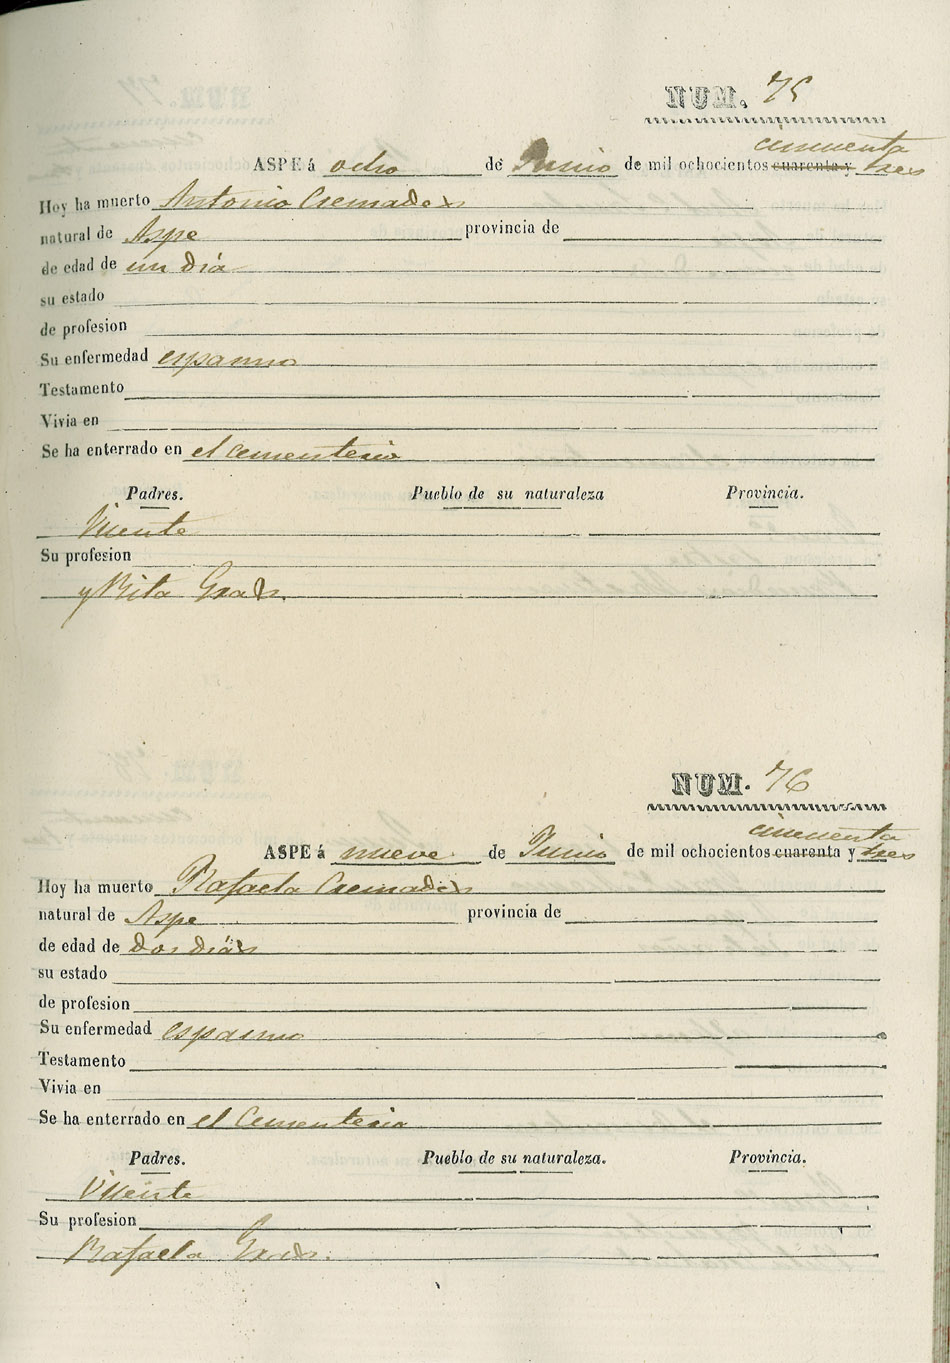 NUM. 75
cincuenta
ASPE á ocho de Junio de mil ochocientos cuarenta y tres
Hoy ha muerto Antonio Cremades
natural de Aspe provincia de
de edad de un dia
su estado
de profesion
Su enfermedad espasmo
Testamento
Vivia en
Se ha enterrado en el Cementerio
Padres. Pueblo de su naturaleza Provincia.
Vicente
Su profesion
y Rita Grau
NUM. 76
cincuenta
ASPE á nueve de Junio de mil ochocientos cuarenta y tres
Hoy ha muerto Rafaela Cremades
natural de Aspe provincia de
de edad de dos dias
su estado
de profesion
Su enfermedad espasmo
Testamento
Vivia en
Se ha enterrado en el Cementerio
Padres. Pueblo de su naturaleza. Provincia.
Vicente
Su profesion
Rafaela